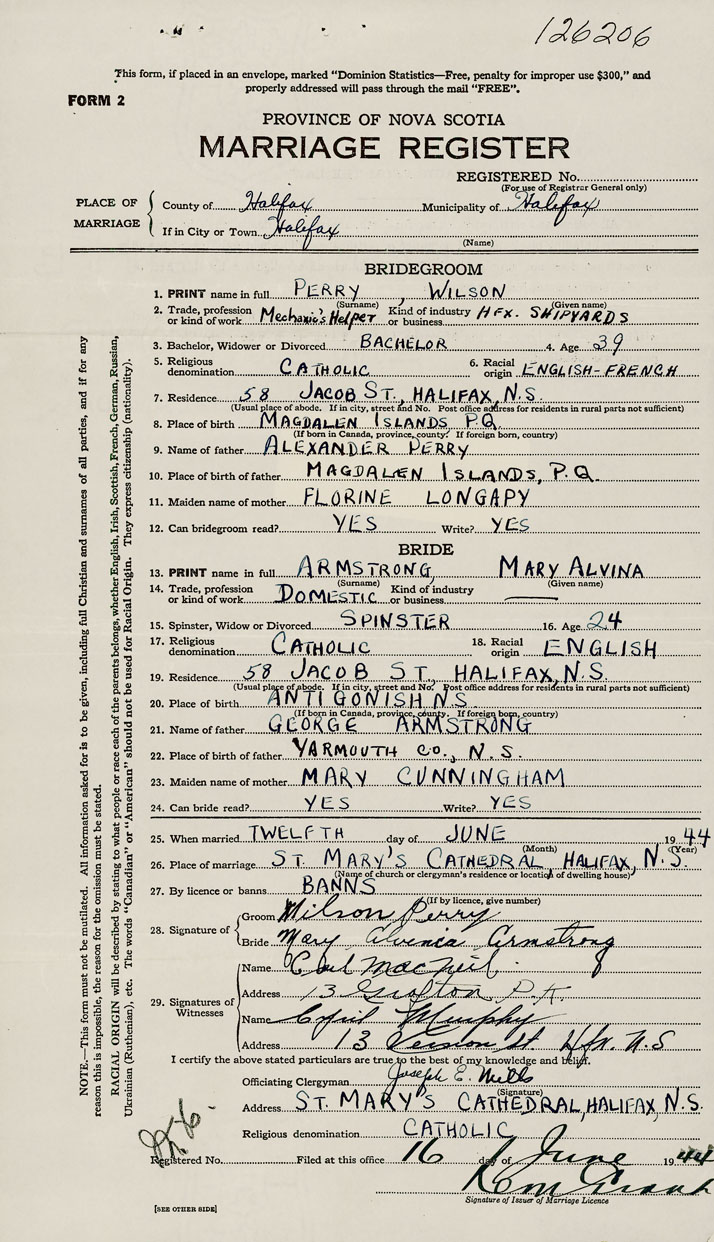 126206
This form, if placed in an envelope, marked "Dominion Statistics—Free, penalty for improper use $300," and
properly addressed will pass through the mail "FREE".
FORM 2
PROVINCE OF NOVA SCOTIA
MARRIAGE REGISTER
REGISTERED No.
(For use of Registrar General only)
PLACE OF MARRIAGE
County of Halifax Municipality of Halifax
If in City or Town Halifax
(Name)
BRIDEGROOM
1. PRINT name in full PERRY, WILSON
(Surname) (Given name)
2. Trade, profession or kind of work Mechanic's Helper Kind of industry or business HFX. SHIPYARDS
3. Bachelor, Widower or Divorced BACHELOR 4. Age 39
5. Religious denomination CATHOLIC 6. Racial origin ENGLISH-FRENCH
7. Residence 58 JACOB ST., HALIFAX, N.S.
(Usual place of abode. If in city, street and No. Post office address for residents in rural parts not sufficient)
8. Place of birth MAGDALEN ISLANDS P.Q.
(If born in Canada, province, county. If foreign born, country)
9. Name of father ALEXANDER PERRY
10. Place of birth of father MAGDALEN ISLANDS, P.Q.
11. Maiden name of mother FLORINE LONGAPY
12. Can bridegroom read? YES Write? YES
BRIDE
13. PRINT name in full ARMSTRONG, MARY ALVINA
(Surname) (Given name)
14. Trade, profession or kind of work DOMESTIC Kind of industry or business
15. Spinster, Widow or Divorced SPINSTER 16. Age 24
17. Religious denomination CATHOLIC 18. Racial origin ENGLISH
19. Residence 58 JACOB ST., HALIFAX, N.S.
(Usual place of abode. If in city, street and No. Post office address for residents in rural parts not sufficient)
20. Place of birth ANTIGONISH N.S.
(If born in Canada, province, county. If foreign born, country)
21. Name of father GEORGE ARMSTRONG
22. Place of birth of father YARMOUTH CO., N.S.
23. Maiden name of mother MARY CUNNINGHAM
24. Can bride read? YES Write? YES
25. When married TWELFTH day of JUNE 1944
(Month) (Year)
26. Place of marriage ST. MARY'S CATHEDRAL, HALIFAX, N.S.
(Name of church or clergyman's residence or location of dwelling house)
27. By licence or banns BANNS
(If by licence, give number)
28. Signature of
Groom Wilson Perry
Bride Mary Alvinia Armstrong
29. Signatures of Witnesses
Name MacNeil
Address 13 Grafton
Name Cyril Murphy
Address 13 St. Hfx. N.S
I certify the above stated particulars are true to the best of my knowledge and belief.
Officiating Clergyman Joseph E. Mills
(Signature)
Address ST. MARY'S CATHEDRAL, HALIFAX, N.S.
Religious denomination CATHOLIC
Registered No. Filed at this office 16 day of June 1944
Signature of Issuer of Marriage Licence
[SEE OTHER SIDE]
NOTE.—This form must not be mutilated. All information asked for is to be given, including full Christian and surnames of all parties, and if for any
reason this is impossible, the reason for the omission must be stated.
RACIAL ORIGIN will be described by stating to what people or race each of the parents belongs, whether English, Irish, Scottish, French, German, Russian,
Ukrainian (Ruthenian), etc. The words "Canadian" or "American" should not be used for Racial Origin. They express citizenship (nationality).